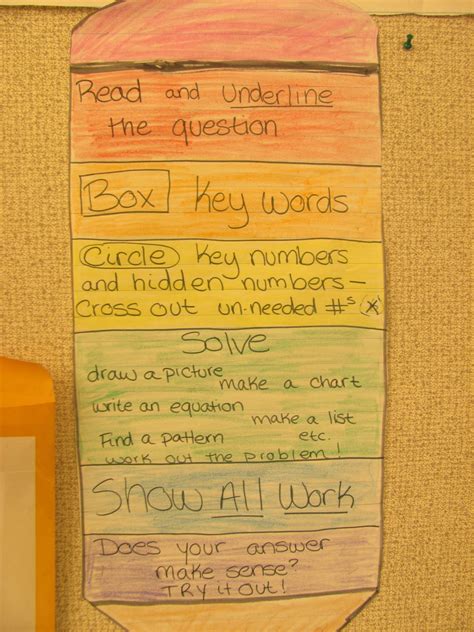 Read and Underline
the question
Box Key words
Circle Key numbers
and hidden numbers-
Cross out un-needed #s x
Solve
draw a picture make a chart
write an equation make a list
Find a pattern etc.
work out the problem!
Show All Work
Does your answer
make sense?
TRY it out!